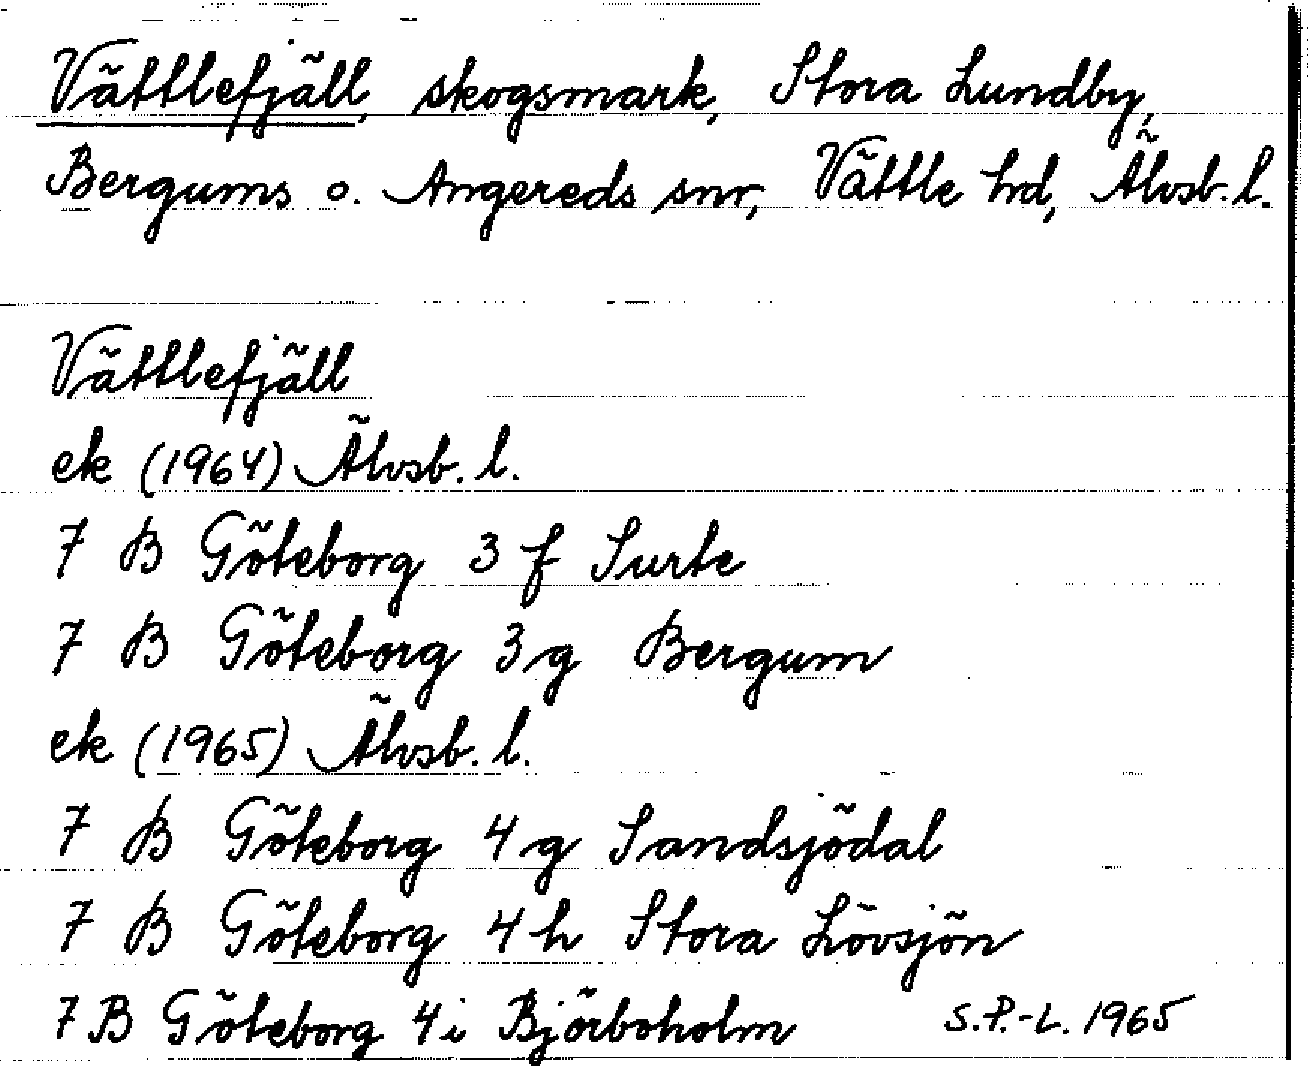 Vättlefjäll, skogsmark, Stora Lundby,
Bergums o. Angereds snr, Vättle hd, Älvsb. l.
Vättlefjäll
ek (1964) Älvsb. l.
7 B Göteborg 3 f Surte
7 B Göteborg 3 g Bergum
ek (1965) Älvsb. l.
7 B Göteborg 4 g Sandsjödal
7 B Göteborg 4 h Stora Lövsjön
7 B Göteborg 4 i Björboholm S.P.-L. 1965